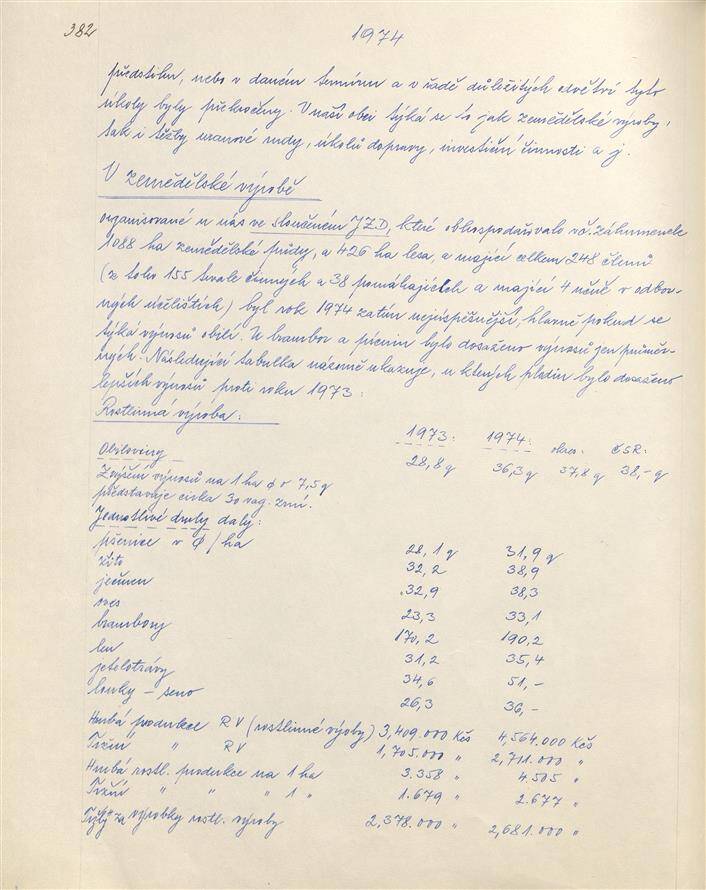 382
1974
předstihu, nebo v daném termínu a v řadě důležitých odvětví tyto
úkoly byly překročeny. V naší obci týká se to jak zemědělské výroby,
tak i těžby uranové rudy, úkolů dopravy, investiční činnosti a j.
V zemědělské výrobě
organisované u nás ve sloučeném JZD, které obhospodařovalo vč. záhumenek
1088 ha zemědělské půdy, a 426 ha lesa, a mající celkem 248 členů
(z toho 155 trvale činných a 38 pomáhajících a mající 4 učně v odbor-
ných učilištích) byl rok 1974 zatím nejúspěšnější, hlavně pokud se
týká výnosů obilí. U brambor a pícnin bylo dosaženo výnosů jen průměr-
ných. Následující tabulka názorně ukazuje, u kterých plodin bylo dosaženo
lepších výnosů proti roku 1973:
Rostlinná výroba:
1973: 1974: okres: ČSR:
Obiloviny 28,8 q 36,3 q 37,8 q 38,- q
Zvýšení výnosů na 1 ha ϕ o 7,5 q
představuje cirka 30 vag. zrní.
Jednotlivé druhy daly:
pšenice v ϕ/ha 28,1 q 31,9 q
žito 32,2 38,9
ječmen 32,9 38,3
oves 23,3 33,1
brambory 170,2 190,2
len 31,2 35,4
jetelotrávy 34,6 51,-
louky - seno 26,3 36,-
Hrubá produkce RV (rostlinné výroby) 3,409.000 Kčs 4,564.000 Kčs
Tržní " RV 1,705.000 " 2,711.000 "
Hrubá rostl. produkce na 1 ha 3.358 " 4.505 "
Tržní " " " 1 " 1.679 " 2.677 "
Tržby za výrobky rostl. výroby 2,378.000 " 2,681.000 "